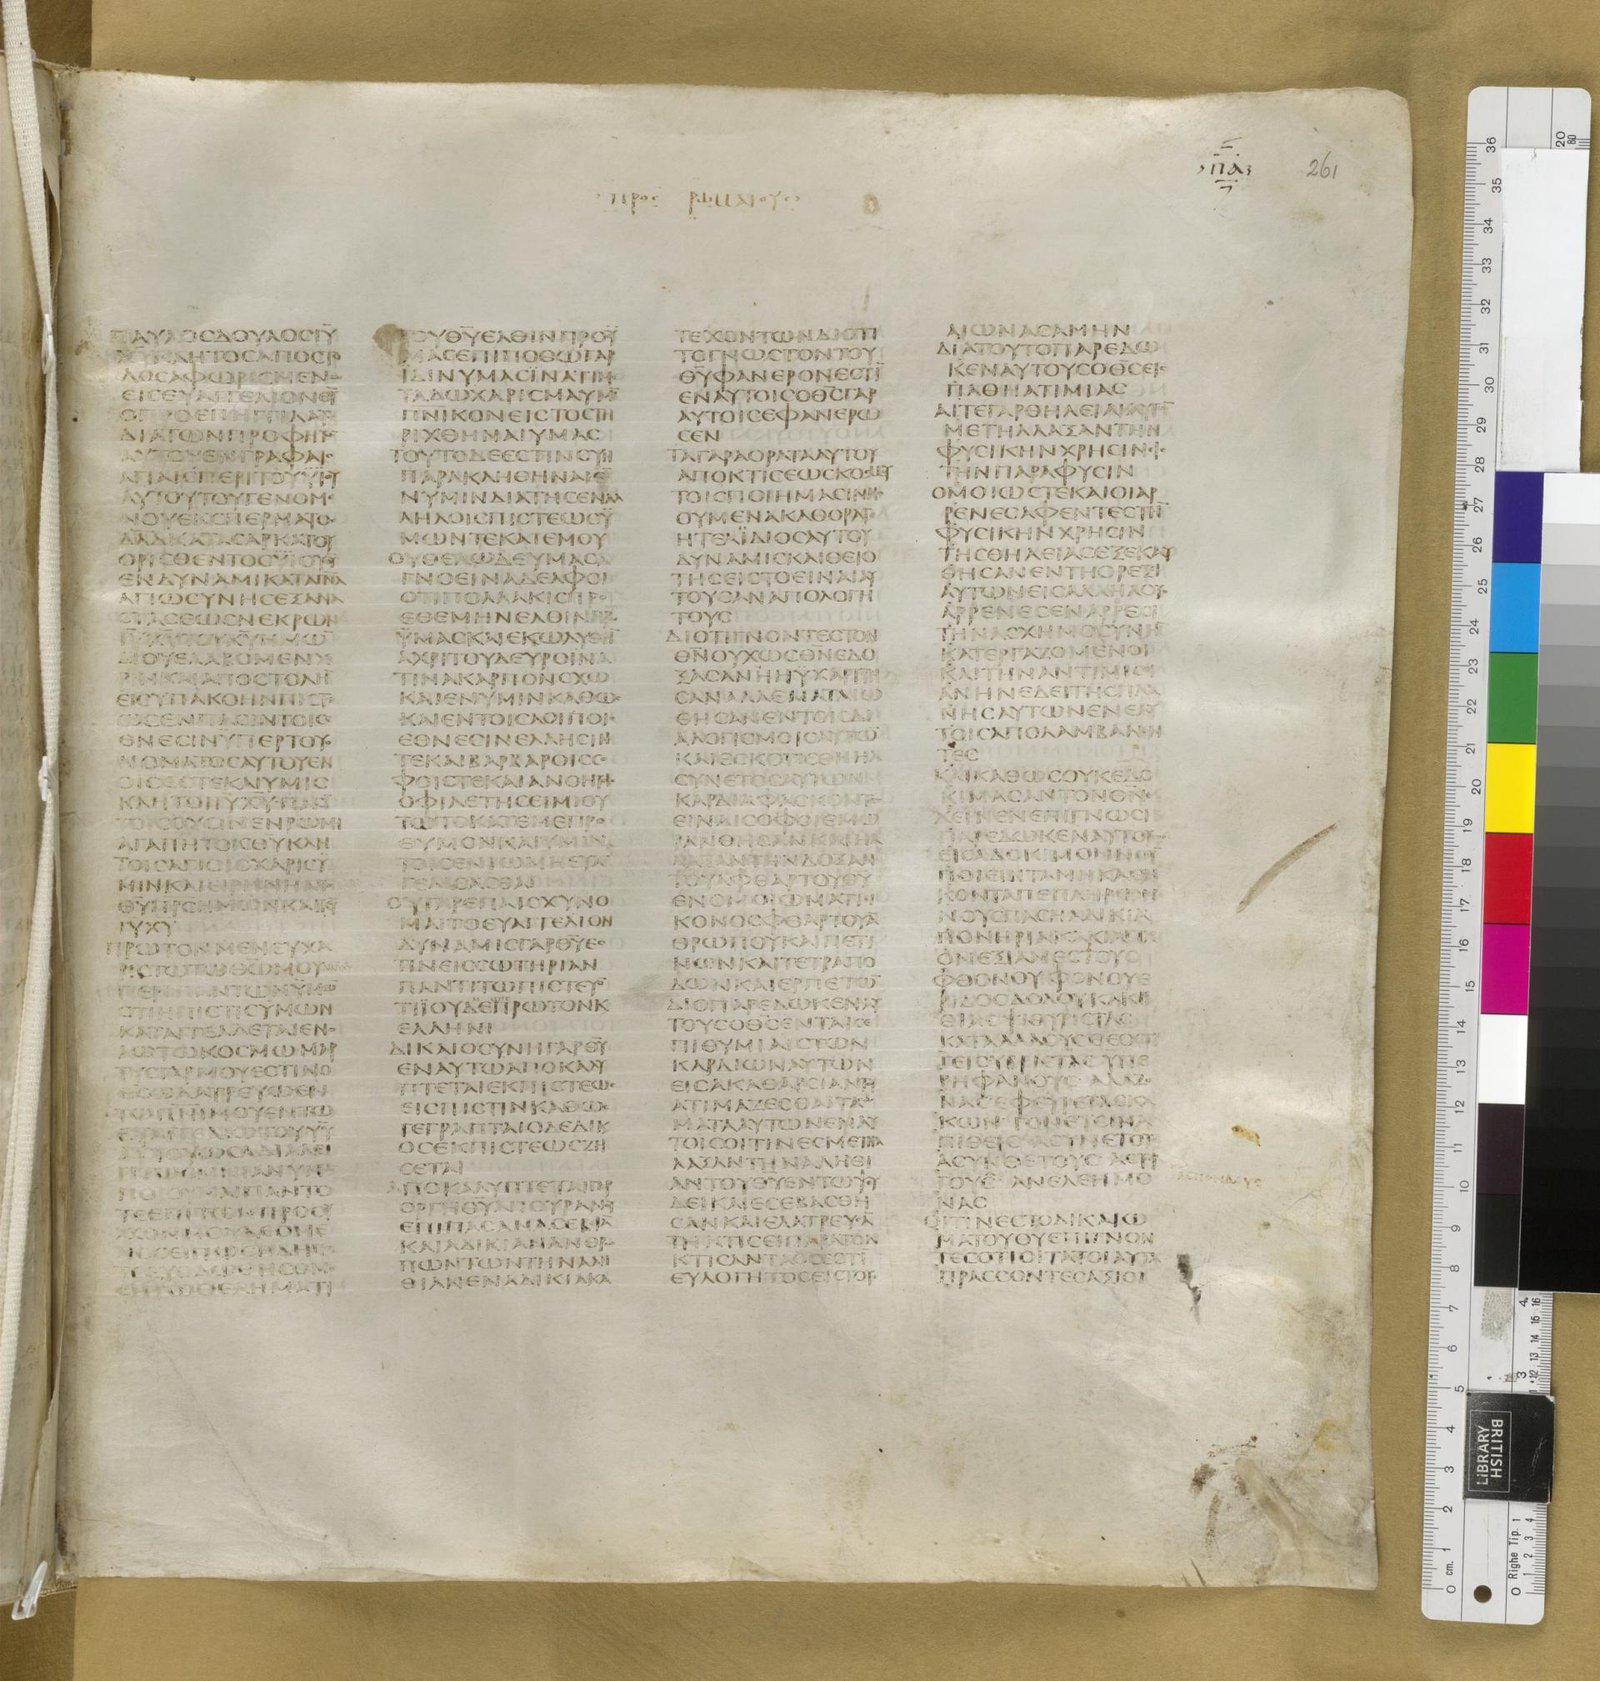 προς ρωμαιους
261
ΠΑΥΛΟϹΔΟΥΛΟϹΙΥ
ΧΥΚΛΗΤΟϹΑΠΟϹΤΟ
ΛΟϹΑΦΩΡΙϹΜΕΝΟϹ
ΕΙϹΕΥΑΓΓΕΛΙΟΝΘΥ
ΟΠΡΟΕΠΗΓΓΙΛΑΤΟ
ΔΙΑΤΩΝΠΡΟΦΗΤΩ
ΑΥΤΟΥΕΝΓΡΑΦΑΙϹ
ΑΓΙΑΙϹΠΕΡΙΤΟΥΥΙΟΥ
ΑΥΤΟΥΤΟΥΓΕΝΟΜΕ
ΝΟΥΕΚϹΠΕΡΜΑΤΟϹ
ΔΑΔΚΑΤΑϹΑΡΚΑΤΟΥ
ΟΡΙϹΘΕΝΤΟϹΥΙΟΥΘΥ
ΕΝΔΥΝΑΜΙΚΑΤΑΠΝΑ
ΑΓΙΩϹΥΝΗϹΕΞΑΝΑ
ϹΤΑϹΕΩϹΝΕΚΡΩΝ
ΙΥΧΥΤΟΥΚΥΗΜΩΝ
ΔΙΟΥΕΛΑΒΟΜΕΝΧΑ
ΡΙΝΚΑΙΑΠΟϹΤΟΛΗ
ΕΙϹΥΠΑΚΟΗΝΠΙϹΤΕ
ΩϹΕΝΠΑϹΙΝΤΟΙϹ
ΕΘΝΕϹΙΝΥΠΕΡΤΟΥΟ
ΝΟΜΑΤΟϹΑΥΤΟΥΕΝ
ΟΙϹΕϹΤΕΚΑΙΥΜΙϹ
ΚΛΗΤΟΙΙΥΧΥΠΑϹΙ
ΤΟΙϹΟΥϹΙΝΕΝΡΩΜΗ
ΑΓΑΠΗΤΟΙϹΘΥΚΛΗ
ΤΟΙϹΑΓΙΟΙϹΧΑΡΙϹΥ
ΜΙΝΚΑΙΕΙΡΗΝΗΑΠΟ
ΘΥΠΡϹΗΜΩΝΚΑΙΚΥ
ΙΥΧΥ
ΠΡΩΤΟΝΜΕΝΕΥΧΑ
ΡΙϹΤΩΤΩΘΩΜΟΥ
ΠΕΡΙΠΑΝΤΩΝΥΜΩ
ΟΤΙΗΠΙϹΤΙϹΥΜΩΝ
ΚΑΤΑΓΓΕΛΛΕΤΑΙΕΝΟ
ΛΩΤΩΚΟϹΜΩΜΑΡ
ΤΥϹΓΑΡΜΟΥΕϹΤΙΝΟ
ΘϹΩΛΑΤΡΕΥΩΕΝ
ΤΩΠΝΙΜΟΥΕΝΤΩ
ΕΥΑΓΓΕΛΙΩΤΟΥΥΥ
ΑΥΤΟΥΩϹΑΔΙΑΛΕΙ
ΠΤΩϹΜΝΙΑΝΥΜΩ
ΠΟΙΟΥΜΑΙΠΑΝΤΟ
ΤΕΕΠΙΤΩΝΠΡΟϹΕΥ
ΧΩΝΜΟΥΔΕΟΜΕ
ΝΟϹΕΙΠΩϹΗΔΗΠΟ
ΤΕΕΥΟΔΩΘΗϹΟΜΑΙ
ΕΝΤΩΘΕΛΗΜΑΤΙ
ΤΟΥΘΥΕΛΘΙΝΠΡΟϹΥ
ΜΑϹΕΠΙΠΟΘΩΓΑΡ
ΙΔΙΝΥΜΑϹΙΝΑΤΙΜΕ
ΤΑΔΩΧΑΡΙϹΜΑΥΜΙ
ΠΝΙΚΟΝΕΙϹΤΟϹΤΗ
ΡΙΧΘΗΝΑΙΥΜΑϹ
ΤΟΥΤΟΔΕΕϹΤΙΝϹΥΝ
ΠΑΡΑΚΛΗΘΗΝΑΙΕ
ΝΥΜΙΝΔΙΑΤΗϹΕΝΑΛ
ΛΗΛΟΙϹΠΙϹΤΕΩϹΥ
ΜΩΝΤΕΚΑΙΕΜΟΥ
ΟΥΘΕΛΩΔΕΥΜΑϹΑ
ΓΝΟΕΙΝΑΔΕΛΦΟΙ
ΟΤΙΠΟΛΛΑΚΙϹΠΡΟ
ΕΘΕΜΗΝΕΛΘΙΝΠΡΟϹ
ΥΜΑϹΚΑΙΕΚΩΛΥΘΗ
ΑΧΡΙΤΟΥΔΕΥΡΟΙΝΑ
ΤΙΝΑΚΑΡΠΟΝϹΧΩ
ΚΑΙΕΝΥΜΙΝΚΑΘΩϹ
ΚΑΙΕΝΤΟΙϹΛΟΙΠΟΙϹ
ΕΘΝΕϹΙΝΕΛΛΗϹΙΝ
ΤΕΚΑΙΒΑΡΒΑΡΟΙϹϹΟ
ΦΟΙϹΤΕΚΑΙΑΝΟΗΤΟΙϹ
ΟΦΙΛΕΤΗϹΕΙΜΙΟΥ
ΤΩϹΤΟΚΑΤΕΜΕΠΡΟ
ΘΥΜΟΝΚΑΙΥΜΙΝ
ΤΟΙϹΕΝΡΩΜΗΕΥΑΓ
ΓΕΛΙϹΑϹΘΑΙ
ΟΥΓΑΡΕΠΑΙϹΧΥΝΟ
ΜΑΙΤΟΕΥΑΓΓΕΛΙΟΝ
ΔΥΝΑΜΙϹΓΑΡΘΥΕϹ
ΤΙΝΕΙϹϹΩΤΗΡΙΑΝ
ΠΑΝΤΙΤΩΠΙϹΤΕΥΟ
ΤΙΙΟΥΔΕΙΠΡΩΤΟΝΚ
ΕΛΛΗΝΙ
ΔΙΚΑΙΟϹΥΝΗΓΑΡΘΥ
ΕΝΑΥΤΩΑΠΟΚΑΛΥ
ΠΤΕΤΑΙΕΚΠΙϹΤΕΩϹ
ΕΙϹΠΙϹΤΙΝΚΑΘΩϹ
ΓΕΓΡΑΠΤΑΙΟΔΕΔΙΚ
ΟϹΕΚΠΙϹΤΕΩϹΖΗ
ϹΕΤΑΙ
ΑΠΟΚΑΛΥΠΤΕΤΑΙΓΑΡ
ΟΡΓΗΘΥΑΠΟΥΡΑΝΟΥ
ΕΠΙΠΑϹΑΝΑϹΕΒΙΑ
ΚΑΙΑΔΙΚΙΑΝΑΝΘΡΩ
ΠΩΝΤΩΝΤΗΝΑΛΗ
ΘΙΑΝΕΝΑΔΙΚΙΑΚΑ
ΤΕΧΟΝΤΩΝΔΙΟΤΙ
ΤΟΓΝΩϹΤΟΝΤΟΥ
ΘΥΦΑΝΕΡΟΝΕϹΤΙ
ΕΝΑΥΤΟΙϹΟΘϹΓΑΡ
ΑΥΤΟΙϹΕΦΑΝΕΡΩ
ϹΕΝ
ΤΑΓΑΡΑΟΡΑΤΑΑΥΤΟΥ
ΑΠΟΚΤΙϹΕΩϹΚΟϹΜΟΥ
ΤΟΙϹΠΟΙΗΜΑϹΙΝΝΟ
ΟΥΜΕΝΑΚΑΘΟΡΑΤΑΙ
ΗΤΕΑΙΔΙΟϹΑΥΤΟΥ
ΔΥΝΑΜΙϹΚΑΙΘΕΙΟ
ΤΗϹΕΙϹΤΟΕΙΝΑΙΑΥ
ΤΟΥϹΑΝΑΠΟΛΟΓΗ
ΤΟΥϹ
ΔΙΟΤΙΓΝΟΝΤΕϹΤΟΝ
ΘΝΟΥΧΩϹΘΝΕΔΟ
ΞΑΣΑΝΗΗΥΧΑΡΙϹΤΗ
ϹΑΝΑΛΛΕΜΑΤΑΙΩ
ΘΗϹΑΝΕΝΤΟΙϹΔΙ
ΑΛΟΓΙϹΜΟΙϹΑΥΤΩ
ΚΑΙΕϹΚΟΤΙϹΘΗΗΑ
ϹΥΝΕΤΟϹΑΥΤΩΝ
ΚΑΡΔΙΑΦΑϹΚΟΝΤΕϹ
ΕΙΝΑΙϹΟΦΟΙΕΜΩ
ΡΑΝΘΗϹΑΝΚΑΙΗΛ
ΛΑΞΑΝΤΗΝΔΟΞΑΝ
ΤΟΥΑΦΘΑΡΤΟΥΘΥ
ΕΝΟΜΟΙΩΜΑΤΙΙ
ΚΟΝΟϹΦΘΑΡΤΟΥΑ
ΘΡΩΠΟΥΚΑΙΠΕΤΙ
ΝΩΝΚΑΙΤΕΤΡΑΠΟ
ΔΩΝΚΑΙΕΡΠΕΤΩ
ΔΙΟΠΑΡΕΔΩΚΕΝΑΥ
ΤΟΥϹΟΘϹΕΝΤΑΙϹΕ
ΠΙΘΥΜΙΑΙϹΤΩΝ
ΚΑΡΔΙΩΝΑΥΤΩΝ
ΕΙϹΑΚΑΘΑΡϹΙΑΝΤΟΥ
ΑΤΙΜΑΖΕϹΘΑΙΤΑϹΩ
ΜΑΤΑΑΥΤΩΝΕΝΑΥ
ΤΟΙϹΟΙΤΙΝΕϹΜΕΤΗΛ
ΛΑΞΑΝΤΗΝΑΛΗΘΕΙ
ΑΝΤΟΥΘΥΕΝΤΩΨΕΥ
ΔΕΙΚΑΙΕϹΕΒΑϹΘΗ
ϹΑΝΚΑΙΕΛΑΤΡΕΥϹΑ
ΤΗΚΤΙϹΕΙΠΑΡΑΤΟΝ
ΚΤΙϹΑΝΤΑΟϹΕϹΤΙ
ΕΥΛΟΓΗΤΟϹΕΙϹΤΟΥϹ
ΑΙΩΝΑϹΑΜΗΝ
ΔΙΑΤΟΥΤΟΠΑΡΕΔΩ
ΚΕΝΑΥΤΟΥϹΟΘϹΕΙϹ
ΠΑΘΗΑΤΙΜΙΑϹ
ΑΙΤΕΓΑΡΘΗΛΕΙΑΙΑΥΤΩ
ΜΕΤΗΛΛΑΞΑΝΤΗΝ
ΦΥϹΙΚΗΝΧΡΗϹΙΝΕΙϹ
ΤΗΝΠΑΡΑΦΥϹΙΝ
ΟΜΟΙΩϹΤΕΚΑΙΟΙΑΡ
ΡΕΝΕϹΑΦΕΝΤΕϹΤΗ
ΦΥϹΙΚΗΝΧΡΗϹΙΝ
ΤΗϹΘΗΛΕΙΑϹΕΞΕΚΑΥ
ΘΗϹΑΝΕΝΤΗΟΡΕΞΙ
ΑΥΤΩΝΕΙϹΑΛΛΗΛΟΥϹ
ΑΡΡΕΝΕϹΕΝΑΡΡΕϹΙ
ΤΗΝΑϹΧΗΜΟϹΥΝΗ
ΚΑΤΕΡΓΑΖΟΜΕΝΟΙ
ΚΑΙΤΗΝΑΝΤΙΜΙϹΘΙ
ΑΝΗΝΕΔΕΙΤΗϹΠΛΑ
ΝΗϹΑΥΤΩΝΕΝΕΑΥ
ΤΟΙϹΑΠΟΛΑΜΒΑΝΟΝ
ΤΕϹ
ΚΑΙΚΑΘΩϹΟΥΚΕΔΟ
ΚΙΜΑϹΑΝΤΟΝΘΝΕ
ΧΕΙΝΕΝΕΠΙΓΝΩϹΙ
ΠΑΡΕΔΩΚΕΝΑΥΤΟΥϹ
ΕΙϹΑΔΟΚΙΜΟΝΝΟΥ
ΠΟΙΕΙΝΤΑΜΗΚΑΘΗ
ΚΟΝΤΑΠΕΠΛΗΡΩΜΕ
ΝΟΥϹΠΑϹΗΑΔΙΚΙΑ
ΠΟΝΗΡΙΑΚΑΚΙΑΠΛΕ
ΟΝΕΞΙΑΜΕϹΤΟΥϹ
ΦΘΟΝΟΥΦΟΝΟΥΕ
ΡΙΔΟϹΔΟΛΟΥΚΑΚΟΗ
ΘΙΑϹΨΙΘΥΡΙϹΤΑϹ
ΚΑΤΑΛΑΛΟΥϹΘΕΟϹΤΥ
ΓΕΙϹΥΒΡΙϹΤΑϹΥΠΕ
ΡΗΦΑΝΟΥϹΑΛΑΖΟ
ΝΑϹΕΦΕΥΡΕΤΑϹΚΑ
ΚΩΝΓΟΝΕΥϹΙΝΑ
ΠΙΘΕΙϹΑϹΥΝΕΤΟΥϹ
ΑϹΥΝΘΕΤΟΥϹΑϹΤΟΡ
ΓΟΥϹΑΝΕΛΕΗΜΟ
ΝΑϹ
ΟΙΤΙΝΕϹΤΟΔΙΚΑΙΩ
ΜΑΤΟΥΘΥΕΠΙΓΝΟΝ
ΤΕϹΟΤΙΟΙΤΑΤΟΙΑΥΤΑ
ΠΡΑϹϹΟΝΤΕϹΑΞΙΟΙ
ασπονδους
BRITISH
LIBRARY